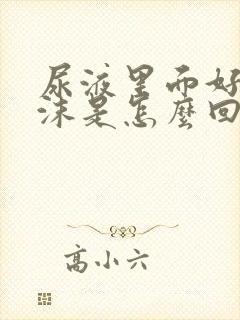 尿液里而好
沫是怎麼回
高小六